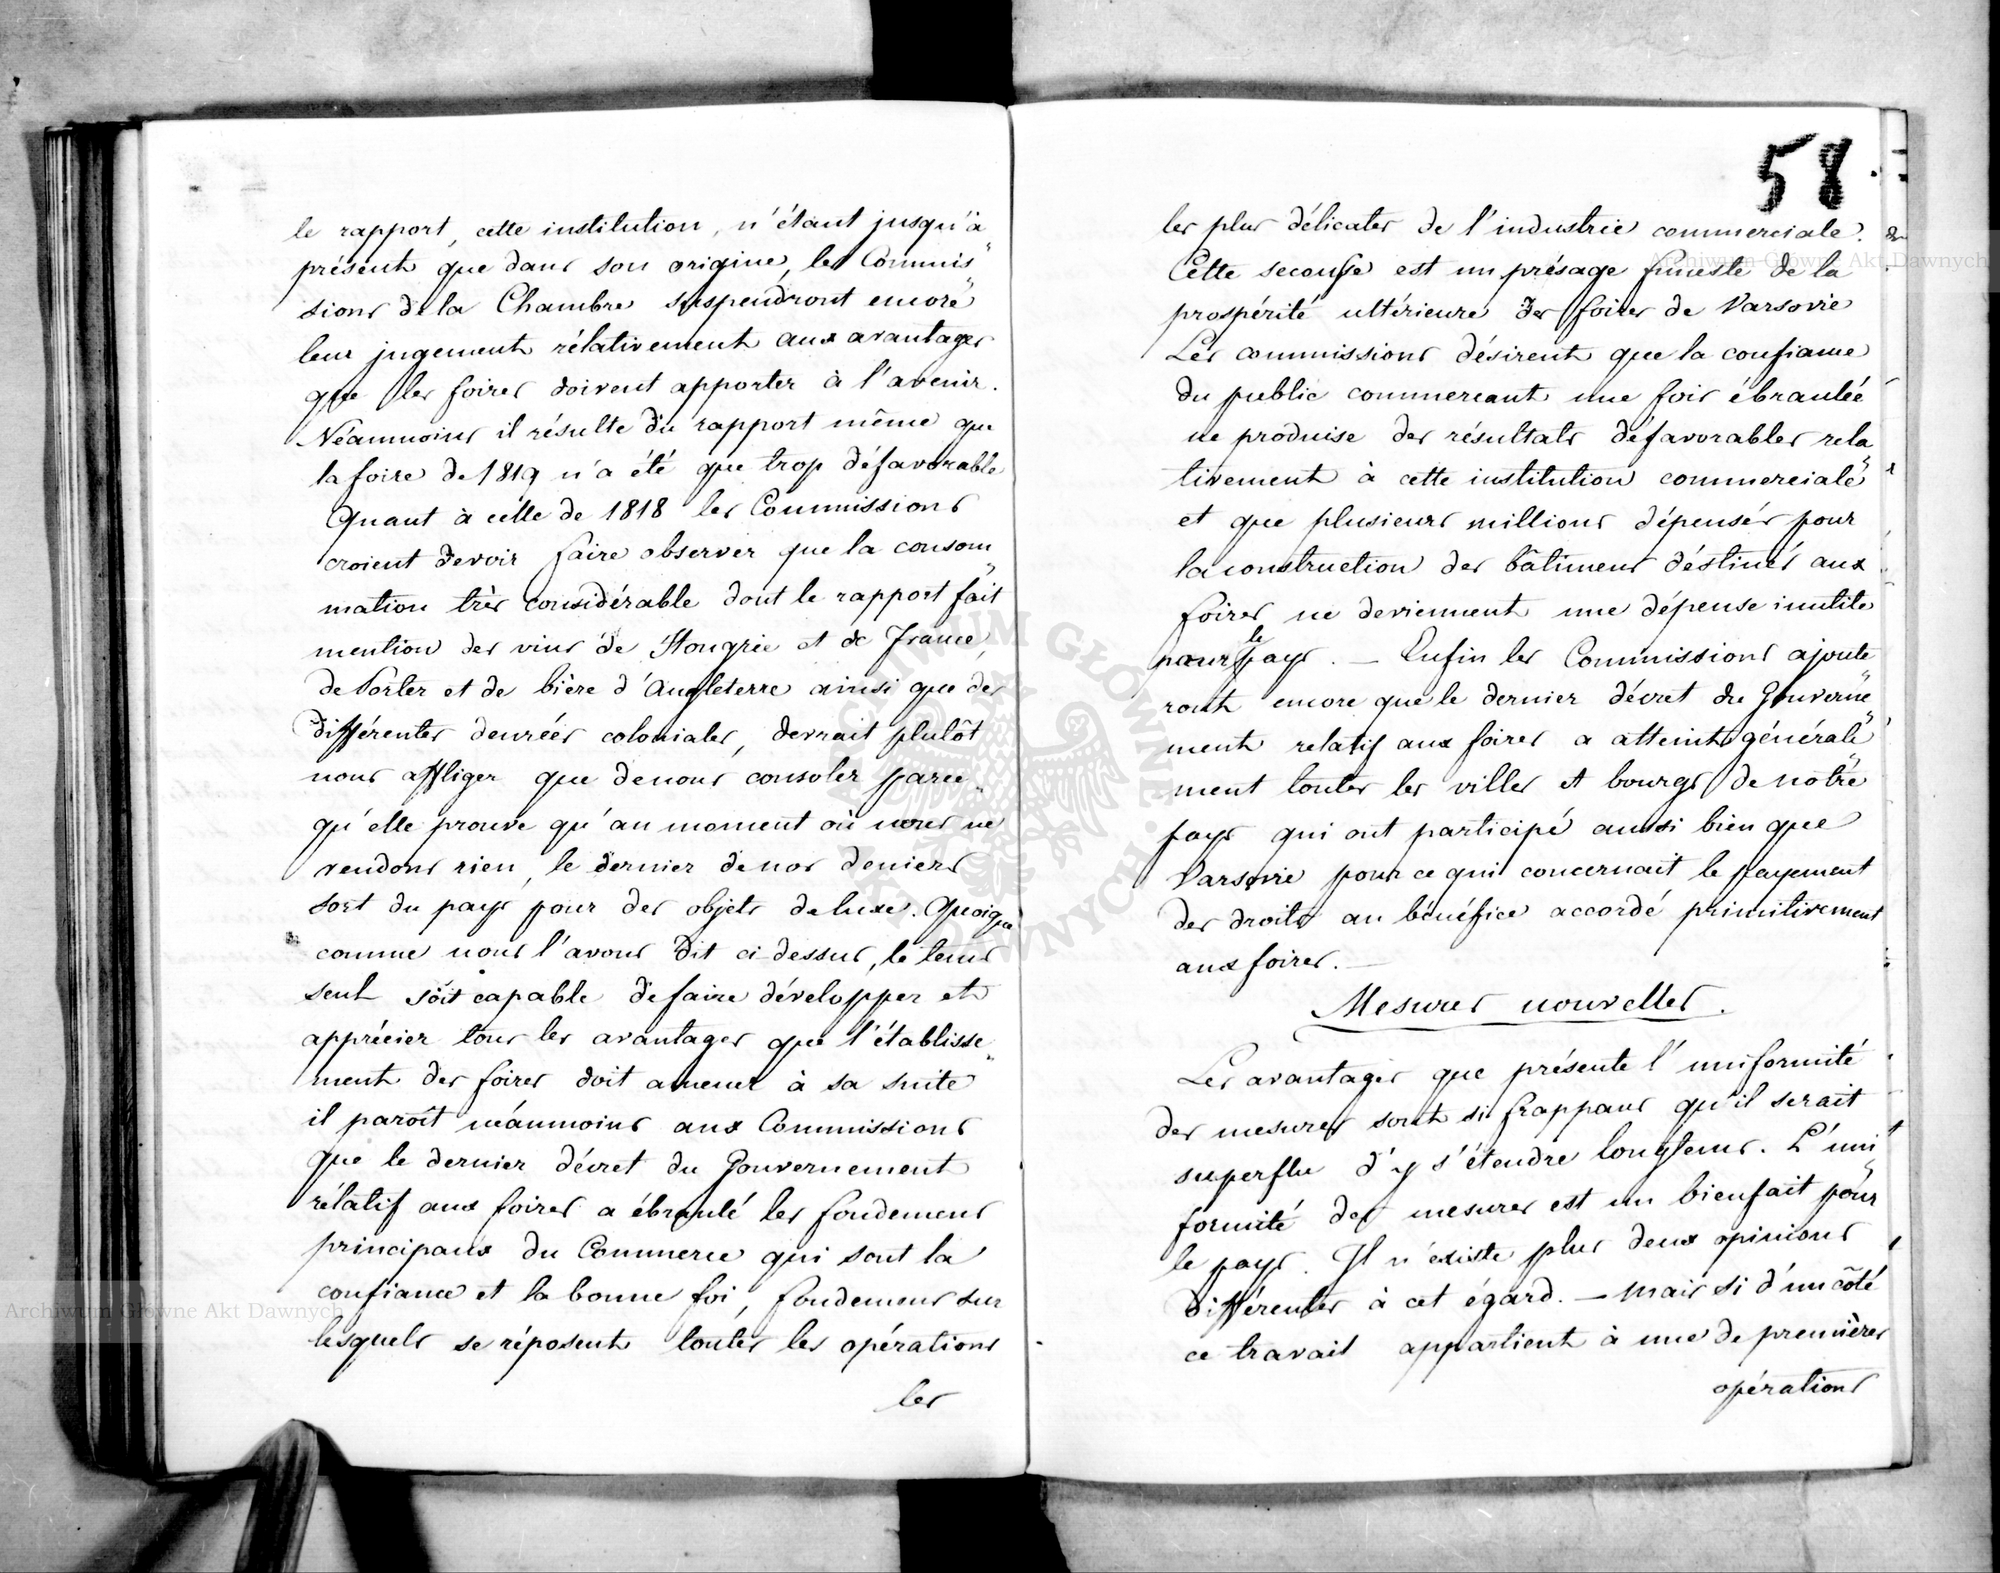 le rapport, cette institution, n'étant jusqu'à
présent que dans son origine, les Commis„
sions de la Chambre suspendront encore
leur jugement rélativement aux avantages
que les foires doivent apporter à l'avenir.
Néanmoins il résulte du rapport même que
la foire de 1819 n'a été que trop défavorable
Quant à celle de 1818 les Commissions
croient devoir faire observer que la consom„
mation très considérable dont le rapport fait
mention des vins de Hongrie et de France,
de Porter et de bière d'Angleterre ainsi que de
différentes denrées coloniales, devrait plutôt
nous affliger que de nous consoler parce„
qu'elle prouve qu'au moment où nous ne
vendons rien, le dernier de nos deniers
sort du pays pour des objets de luxe. Quoique
comme nous l'avons dit ci dessus, le tems
seul soit capable de faire développer et
apprécier tous les avantages que l'établisse„
ment des foires doit amener à sa suite
il paroît néanmoins aux Commissions
que le dernier décret du Gouvernement
rélatif aux foires a ébranlé les fondemens
principaux du Commerce qui sont la
confiance et la bonne foi, fondemens sur
lesquels se réposent toutes les opérations
les
58
les plus délicates de l'industrie commerciale.
Cette secousse est un présage funeste de la
prospérité ultérieure des foires de Varsovie
Les commissions désirent que la confiance
du public commercant une fois ébranlée
ne produise des résultats défavorables rela„
tivement à cette institution commerciale
et que plusieurs millions dépensés pour
la construction des bâtimens déstinés aux
foires ne deviennent une dépense inutile
pour le pays. — Enfin les Commissions ajoute„
ront encore que le dernier décret du Gouverne„
ment relatif aux foires a atteint générale„
ment toutes les villes et bourgs de notre
pays qui ont participé aussi bien que
Varsovie pour ce qui concernait le payement
des droits au bénéfice accordé primitivement
aux foires. —
Mesures nouvelles.
Les avantages que présente l'uniformité
des mesures sont si frappans qu'il serait
superflu d'y s'étendre longtems. L'uni„
formité des mesures est un bienfait pour
le pays. Il n'existe plus deux opinions
différentes à cet égard. — mais si d'un côté
ce travail appartient à une de premières
opérations
Archiwum Główne Akt Dawnych
Archiwum Główne Akt Dawnych